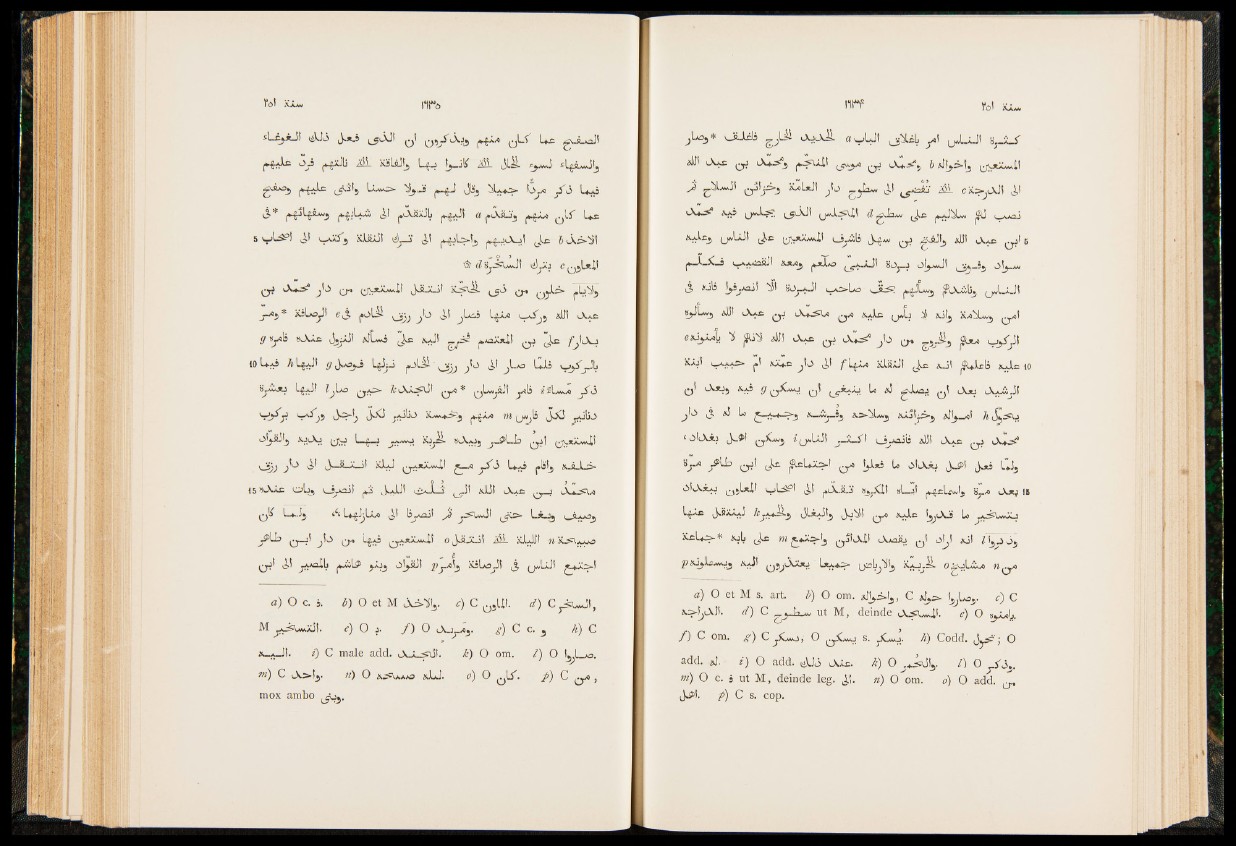 سنة ٢٥١ ١٦٣۴
كثرة الناس امر باغلاق الباب a الحديد الخارج فاغلق *وصار
المستعين واخواله b ومحمد بن موسى المنجم ومحمد بن عبد الله
الى الدرجة c التى تُفضى الى سطوح دار العامة وخزائن السلاح ثم
نصب لهم سلاليم على سطح d المجلس الذى يجلس فيه محمد
5 ابن عبد الله والفتح بن سهل فاشرف المستعين على الناس وعليه
سواد وفوق السواد بردة النبىّ صلّعم ومعه القضيب فكلّم
الناس وناشدهم وسألهم بحقّ صاحب البردة الّا انصرفوا فانه فى
امن وسلامة وانه لا بأس عليه من محمد بن عبد الله وسألوه
الركوب معهم والخروج من دار محمد بن عبد الله لانهم لا يأمنونه e
10 عليه فاعلمهم انه على النقلة منها f الى دار عمّته امّ حبيب ابنة
الرشيد بعد ان يصلح له ما ينبغى ان يسكن g فيه وبعد ان
يحوّل h امواله وخزائنه وسلاحه وفرشه وجميع ما له فى دار
محمّد بن عبد الله فانصرف اكثر الناس i وسكن اهل بغداد،
ولمّا فعل اهل بغداد ما فعلوا من اجتماعهم على ابن طاهر مرة
15 بعد مرة واسماعهم ايّاه المكروه تقدّم الى اصحاب المعاون ببغداد
بتسخير ما قدروا عليه من الابل والبغال والحمير k لينتقل عنها
وذكروا l انه اراد ان يقصد المدائن واجتمع m على بابه *جماعة
من n مشايخ o الحربيّة والارباض جميعا يعتذرون اليه ويسألونه p
a) O et M s. art. b) O om. واخواله, C وصاروا حوله. c) C
الدراجه. d) C سطوح ut M, deinde المسجد. e) O يامنوه.
f) C om. g) C نسكن, O يسكن s. يسكن. h) Codd. يحول; O
add. له. i) O add. عند ذلك. k) O والحمر. l) O وذكر.
m) O c. ة ut M, deinde leg. الى. n) O om. o) O add. من
اهل. p) C s. cop.
سنة ٢٥١ ١٦٣٥
الصفح عما كان منهم ويذكرون ان الذى فعل ذلك الغوغاء
والسفهاء لسوء الحال التى كانوا بها والفاقة التى نالتهم فردّ عليهم
فيما ذكر مردّا جميلا وقال لهم قولا حسنا واثنى عليهم وصفح
عما كان منهم وتقدّم a اليهم بالتقدّم الى شبابهم وسفهائهم *فى
5 الاخذ b على ايديهم واجابهم الى ترك النقلة وكتب الى اصحاب
المعاون c بترك السُخْرة d ❊
ولايام خلون من ذى الحجّة انتقل المستعين من دار محمد بن
عبد الله وركب منها فصار الى دار رزق الخادم فى e الرصافة *ومرّ
بدار f علىّ بن المعتصم فخرج اليه علىّ فسأله النزول عنده فامره g
10 بالركوب فلمّا صار الى دار رزق الخادم نزلها فوصل g اليها h فيما
ذكر مساء i فامر للفرسان *من الجند k حين صار l اليها بعشرة
دنانير لكلّ فارس m منهم وخمسة دنانير لكلّ راجل وركب بركوب
المستعين ابنُ طاهر وبيده الحربة يسير بها بين يديه والقوّاد
خلفه واقام فيما ذكر مع المستعين ليلة انتقل الى دار رزق
15 محمّد بن عبد الله الى ثلث الليل ثم انصرف وبات عنده
وصيف وبغا حتى السحر ثم انصرفا الى منازلهما، ولما كان
صبيحة n الليلة التى انتقل o المستعين فيها من دار ابن طاهر
اجتمع الناس فى الرصافة وأُمِرَ p القوّاد وبنو هاشم بالمصير الى ابن
a) O c. ف. b) O et M والاخذ. c) C الماون. d) C السخر,
M التسخير. e) O ب. f) O ومر بدار. g) C c. و h) C
اليه. i) C male add. المسجد. k) O om. l) O صاروا.
m) C واحد. n) O o) O كان. p) C من,
mox ambo وبنى.